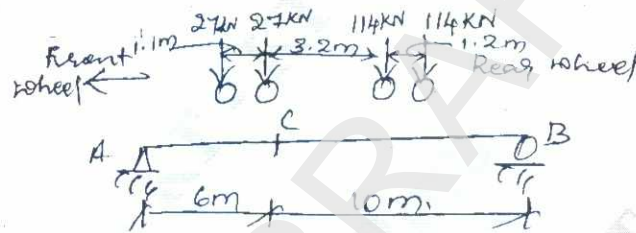 27KN 27KN 114KN 114KN
Front 1.1m 3.2m 1.2m
wheel Rear wheel
A C B
6m 10m